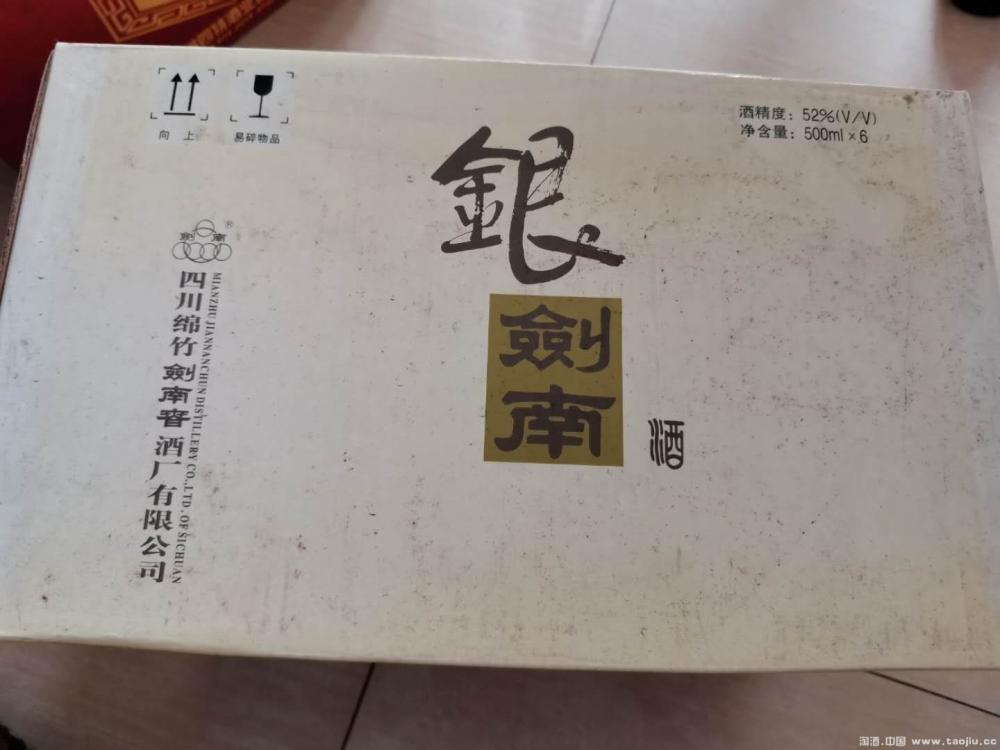 向上
易碎物品
酒精度：52%(V/V)
净含量：500ml×6
銀
劍南
酒
劍南
®
四川绵竹劍南春酒厂有限公司
MIANZHU JIANNANCHUN DISTILLERY CO.,LTD.OF SICHUAN
淘酒.中国 www.taojiu.cc